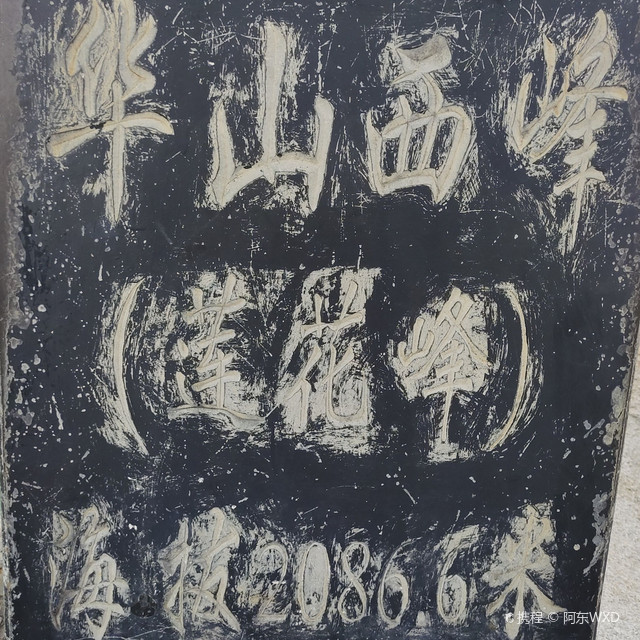 华山西峰
(莲花峰)
海拔2086.6米
携程 © 阿东WXD